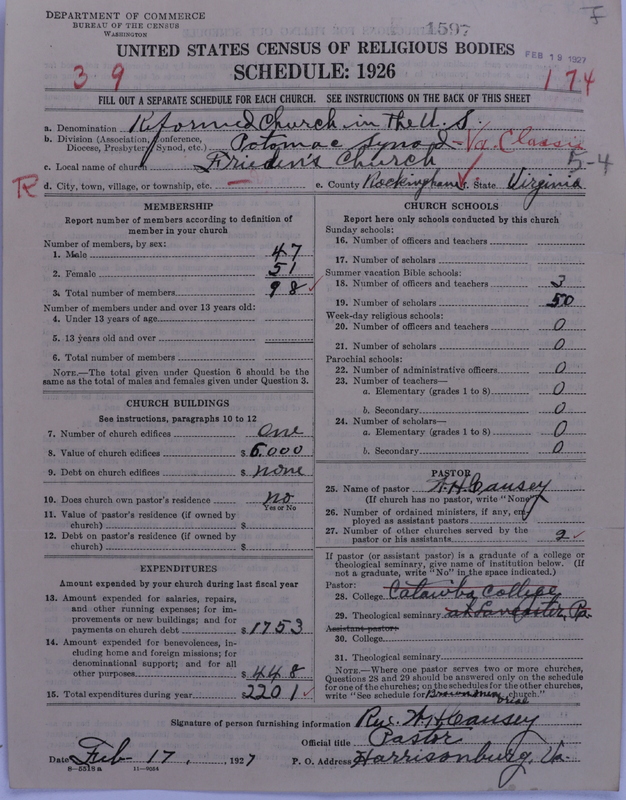 DEPARTMENT OF COMMERCE
BUREAU OF THE CENSUS
WASHINGTON
1597
F
UNITED STATES CENSUS OF RELIGIOUS BODIES
FEB 19 1927
39
SCHEDULE: 1926
174
FILL OUT A SEPARATE SCHEDULE FOR EACH CHURCH. SEE INSTRUCTIONS ON THE BACK OF THIS SHEET
a. Denomination Reformed Church in the U.S.
b. Division (Association, Conference, Diocese, Presbytery, Synod, etc.) Potomac Synod - Va. Classis
c. Local name of church Frieden's Church 5-4
d. City, town, village, or township, etc. e. County Rockingham f. State Virginia
MEMBERSHIP
Report number of members according to definition of
member in your church
Number of members, by sex:
1. Male 47
2. Female 51
3. Total number of members 98
Number of members under and over 13 years old:
4. Under 13 years of age
5. 13 years old and over
6. Total number of members
NOTE.—The total given under Question 6 should be
same as the total of males and females given under Question 3.
CHURCH BUILDINGS
See instructions, paragraphs 10 to 12
7. Number of church edifices One
8. Value of church edifices $ 6,000
9. Debt on church edifices $ none
10. Does church own pastor's residence no
Yes or No
11. Value of pastor's residence (if owned by
church) $
12. Debt on pastor's residence (if owned by
church) $
EXPENDITURES
Amount expended by your church during last fiscal year
13. Amount expended for salaries, repairs,
and other running expenses; for im-
provements or new buildings; and for
payments on church debt $ 1753
14. Amount expended for benevolences, in-
cluding home and foreign missions; for
denominational support; and for all
other purposes $ 448
15. Total expenditures during year 2201
CHURCH SCHOOLS
Report here only schools conducted by this church
Sunday schools:
16. Number of officers and teachers
17. Number of scholars
Summer vacation Bible schools:
18. Number of officers and teachers 3
19. Number of scholars 50
Week-day religious schools:
20. Number of officers and teachers 0
21. Number of scholars 0
Parochial schools:
22. Number of administrative officers 0
23. Number of teachers—
a. Elementary (grades 1 to 8) 0
b. Secondary 0
24. Number of scholars—
a. Elementary (grades 1 to 8) 0
b. Secondary 0
PASTOR
25. Name of pastor A. H. Causey
(If church has no pastor, write "None")
26. Number of ordained ministers, if any, em-
ployed as assistant pastors
27. Number of other churches served by the
pastor or his assistants 2
If pastor (or assistant pastor) is a graduate of a college or
theological seminary, give name of institution below. (If
not a graduate, write "No" in the space indicated.)
Pastor:
28. College Catawba College
29. Theological seminary at Lancaster, Pa
Assistant pastor:
30. College
31. Theological seminary
NOTE.—Where one pastor serves two or more churches,
Questions 28 and 29 should be answered only on the schedule
for one of the churches; on the schedules for the other churches,
write "See schedule for church."
Signature of person furnishing information Rev. A. H. Causey
Official title Pastor
Date Feb 17, 1927 P. O. Address Harrisonburg, Va.
8—5518 a 11—9054